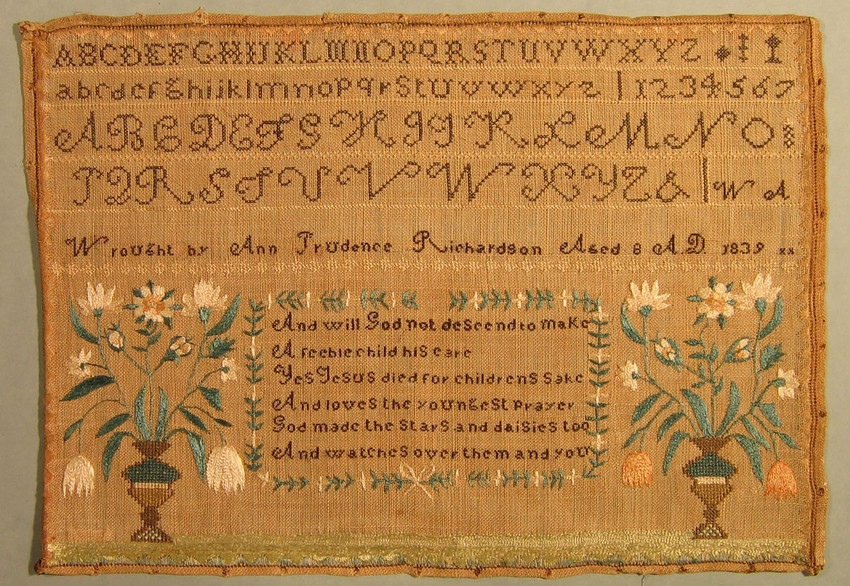 ABCDEFGHIJKLMNOPQRSTUVWXYZ
abcdefghijklmnopqrstuvwxyz 1234567
ABCDEFGHIJKLMNO
PQRSTUVWXYZ& WA
Wrought by Ann Prudence Richardson Aged 8 A.D. 1839 xx
And will God not descend to make
A feeble child his care
Yes Jesus died for childrens sake
And loves the youngest prayer
God made the stars and daisies too
And watches over them and you